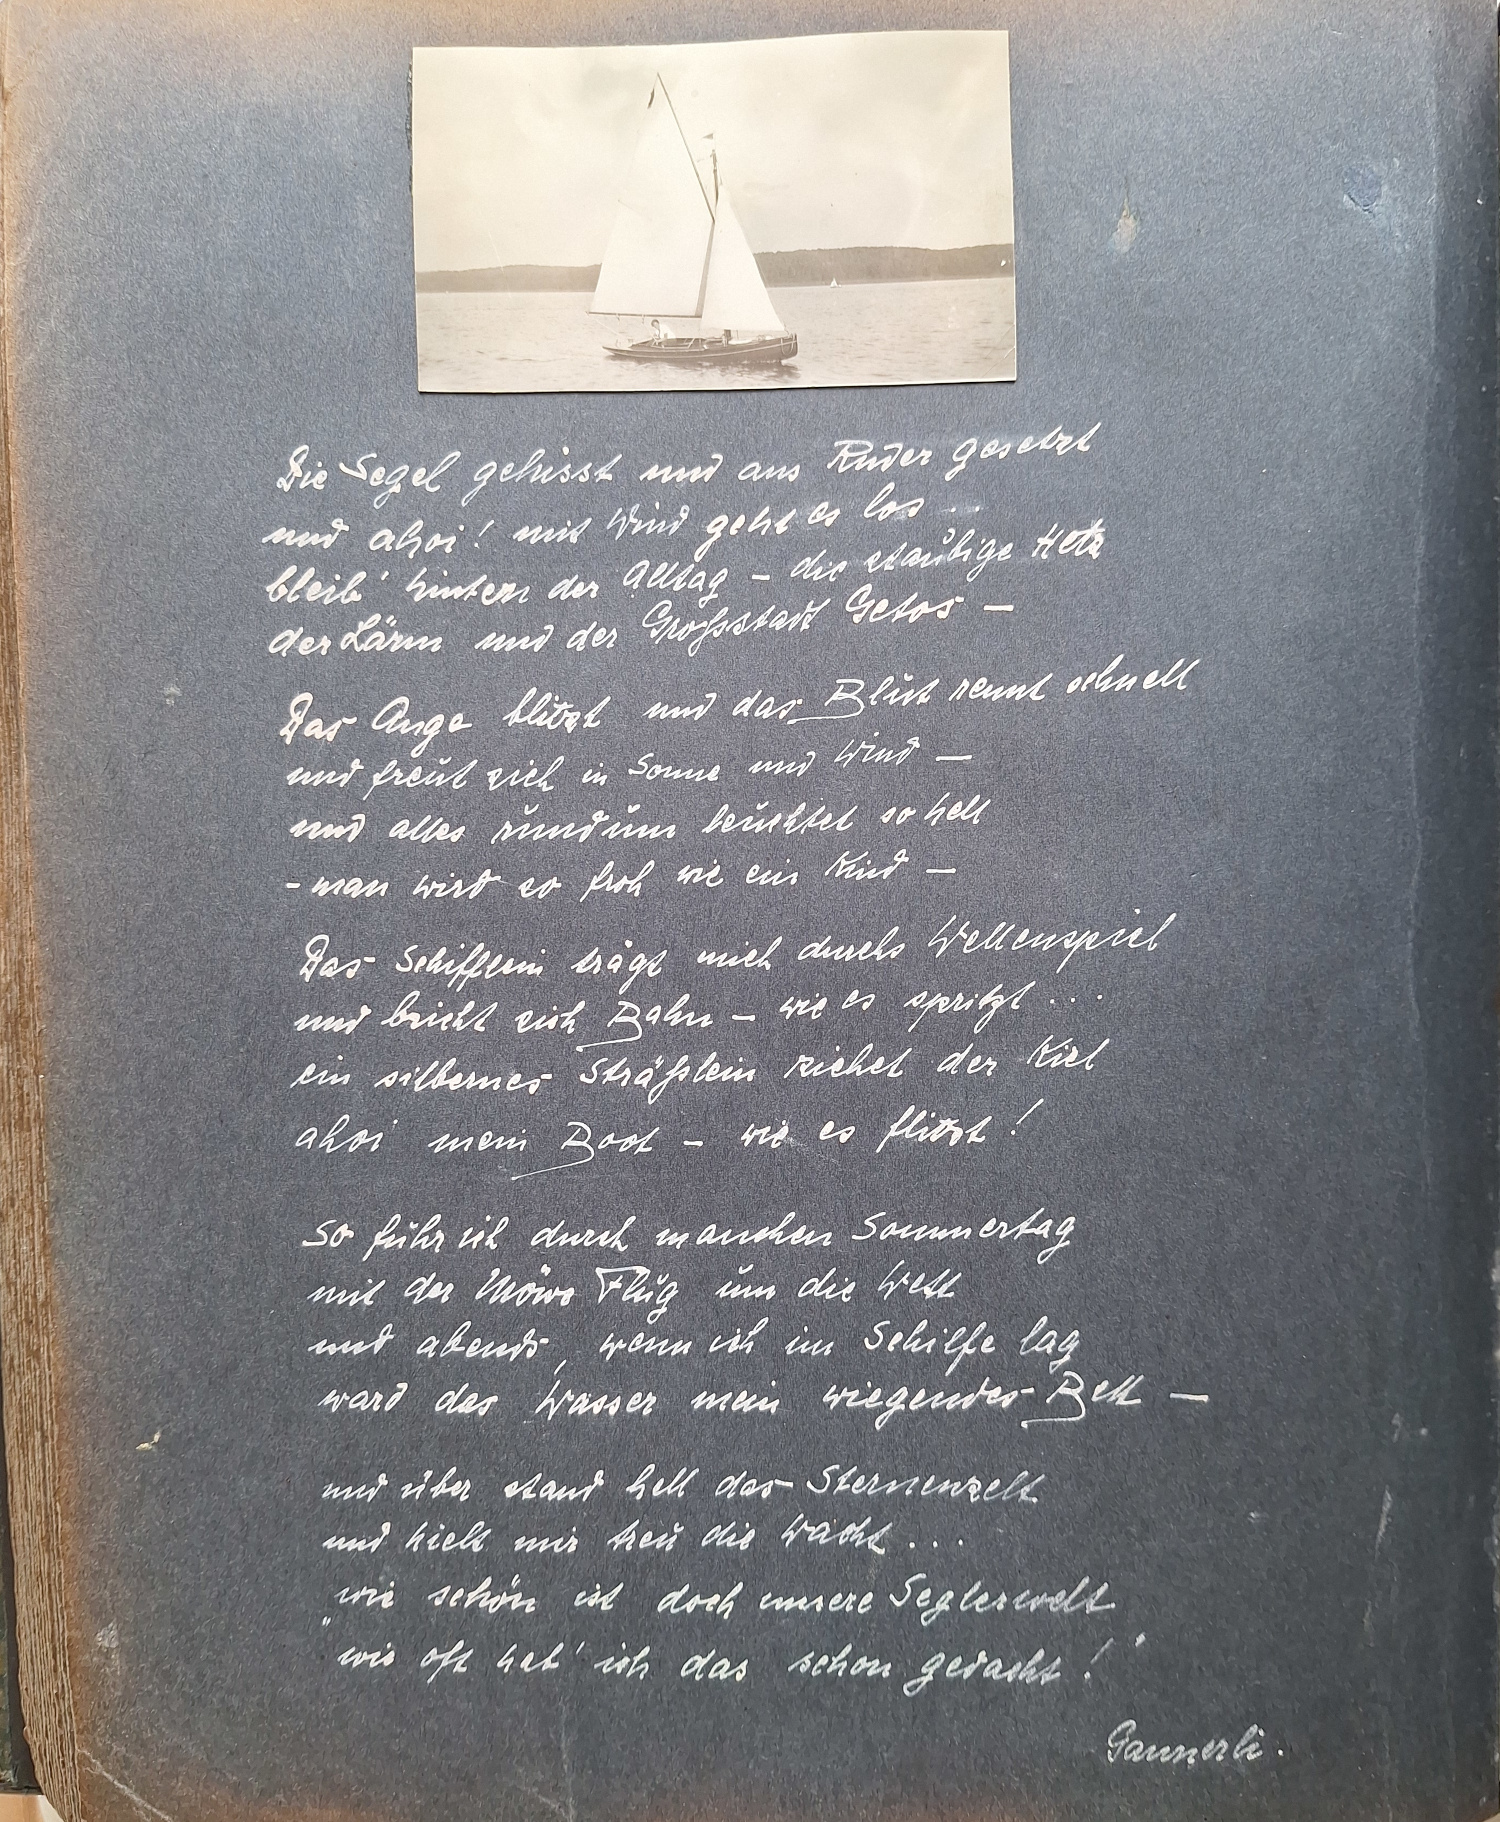 Die Segel gehisst und ans Ruder gesetzt
und ahoi! mit Wind geht es los ...
bleib' hintern der Alltag – die staubige Hetz
der Lärm und der Großstadt Getos –
Das Auge blitzt und das Blut rennt schnell
und freut sich in Sonne und Wind –
und alles rundum leuchtet so hell
- man wird so froh wie ein Kind –
Das Schifflein trägt mich durchs Wellenspiel
und bricht sich Bahn – wie es spritzt ...
ein silbernes Sträßlein ziehet der Kiel
ahoi mein Boot – wie es flitzt!
So führ ich durch manchen Sommertag
mit der Möwe Flug um die Wett
und abends, wenn ich im Schilfe lag
ward das Wasser mein wiegendes Bett –
und über stand hell das Sternenzelt
und hielt mir treu die Wacht ...
„wie schön ist doch unsere Seglerwelt
wie oft hab' ich das schon gedacht!"